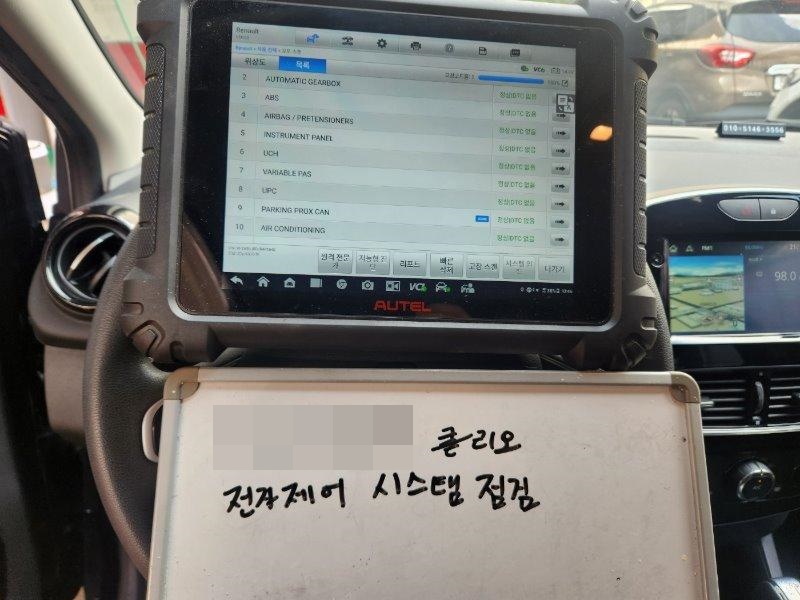 Renault
Renault > 자동 선택 > 오토 스캔
위상도 목록
2 AUTOMATIC GEARBOX 정상|DTC 없음
3 ABS 정상|DTC 없음
4 AIRBAG / PRETENSIONERS 정상|DTC 없음
5 INSTRUMENT PANEL 정상|DTC 없음
6 UCH 정상|DTC 없음
7 VARIABLE PAS 정상|DTC 없음
8 UPC 정상|DTC 없음
9 PARKING PROX CAN 정상|DTC 없음
10 AIR CONDITIONING 정상|DTC 없음
지능형 진단 리포트 빠른 삭제 고장 스캔 나가기
VCI
AUTEL
010-5146-3556
FM1
98.0
클리오
전자제어 시스템 점검